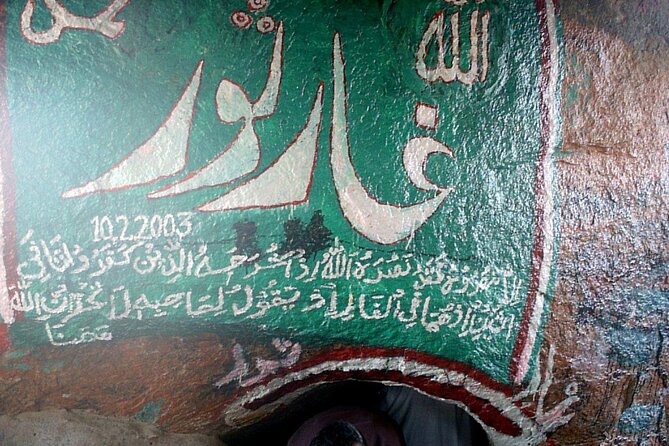 الله
غار ثور
10.2.2003
إلا تنصروه فقد نصره الله إذ أخرجه الذين كفروا ثاني
اثنين إذ هما في الغار إذ يقول لصاحبه لا تحزن إن الله
معنا
غار ثور